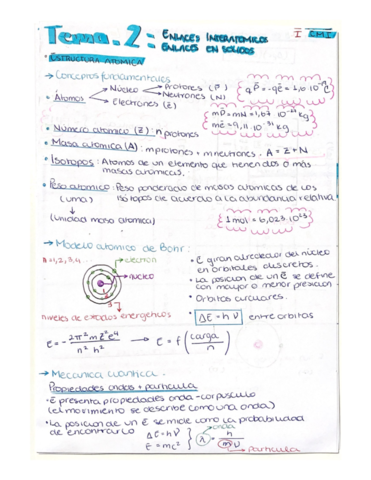 Tema. 2: ENLACES INTERATOMICOS I CMI
ENLACES EN SOLIDOS
• ESTRUCTURA ATOMICA
→ Conceptos fundamentales
• Átomos Núcleo Protones (P) Neutrones (N)
Electrones (Z)
• Numero atomico (Z): nº protones
• Masa atomica (A): mprotones + mneutrones. A = Z + N
• Isotopos: Atomos de un elemento que tienen dos ó más
masas atómicas.
• Peso atomico: Peso ponderado de masas atomicas de los
(uma) isotopos de acuerdo a la abundancia relativa
(unidad masa atomica) 1 mol = 6,023·10²³
→ Modelo atomico de Bohr:
n=1,2,3,4... electron
nucleo
niveles de estados energéticos
• e giran alrededor del núcleo
en orbitales discretos.
• La posicion de un e se define
con mayor o menor precision
• Orbitas circulares.
• ΔE = h ν entre orbitas
E = - 2π² m Z² e⁴ / n² h² → E = f (carga / n)
→ Mecanica cuantica.
Propiedades ondas + particula
• e presenta propiedades onda-corpusculo
(el movimiento se describe como una onda)
• La posicion de un e se mide como la probabilidad
de encontrarlo ΔE = h ν onda
E = mc² λ = h / mν particula